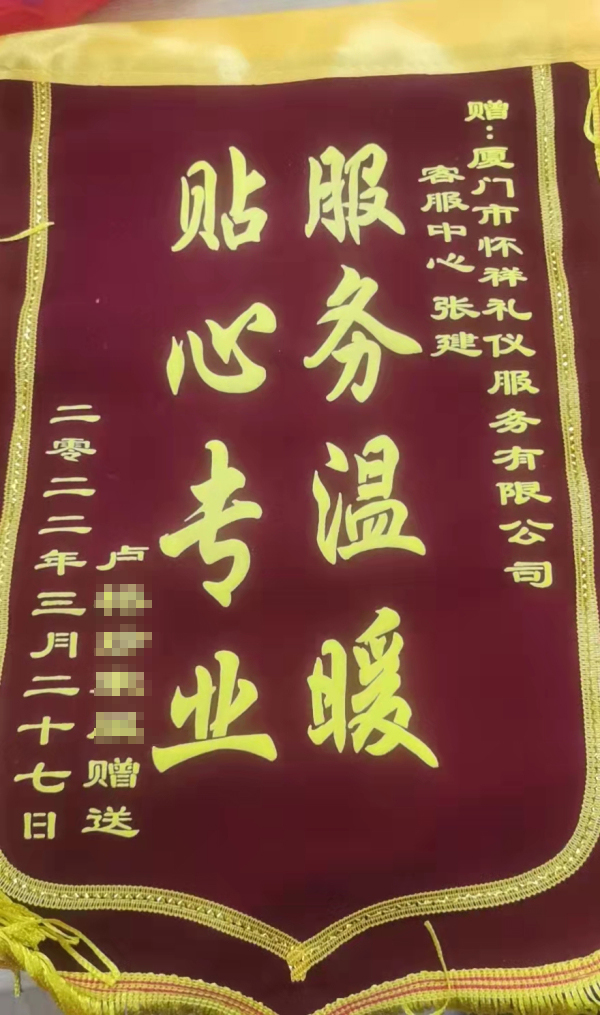 赠:厦门市怀祥礼仪服务有限公司
客服中心 张建
服务温暖
贴心专业
卢
赠送
二零二二年三月二十七日